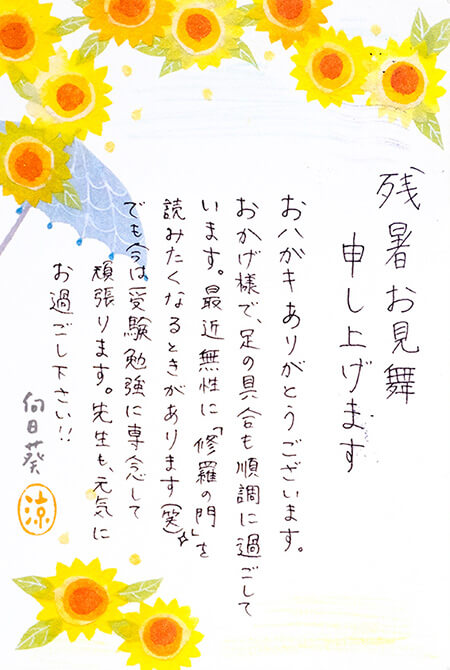 残暑お見舞
申し上げます
おハガキありがとうございます。
おかげ様で、足の具合も順調に過ごして
います。最近無性に「修羅の門」を
読みたくなるときがあります(笑)☆
でも今は受験勉強に専念して
頑張ります。先生も、元気に
お過ごし下さい!!
向日葵
涼